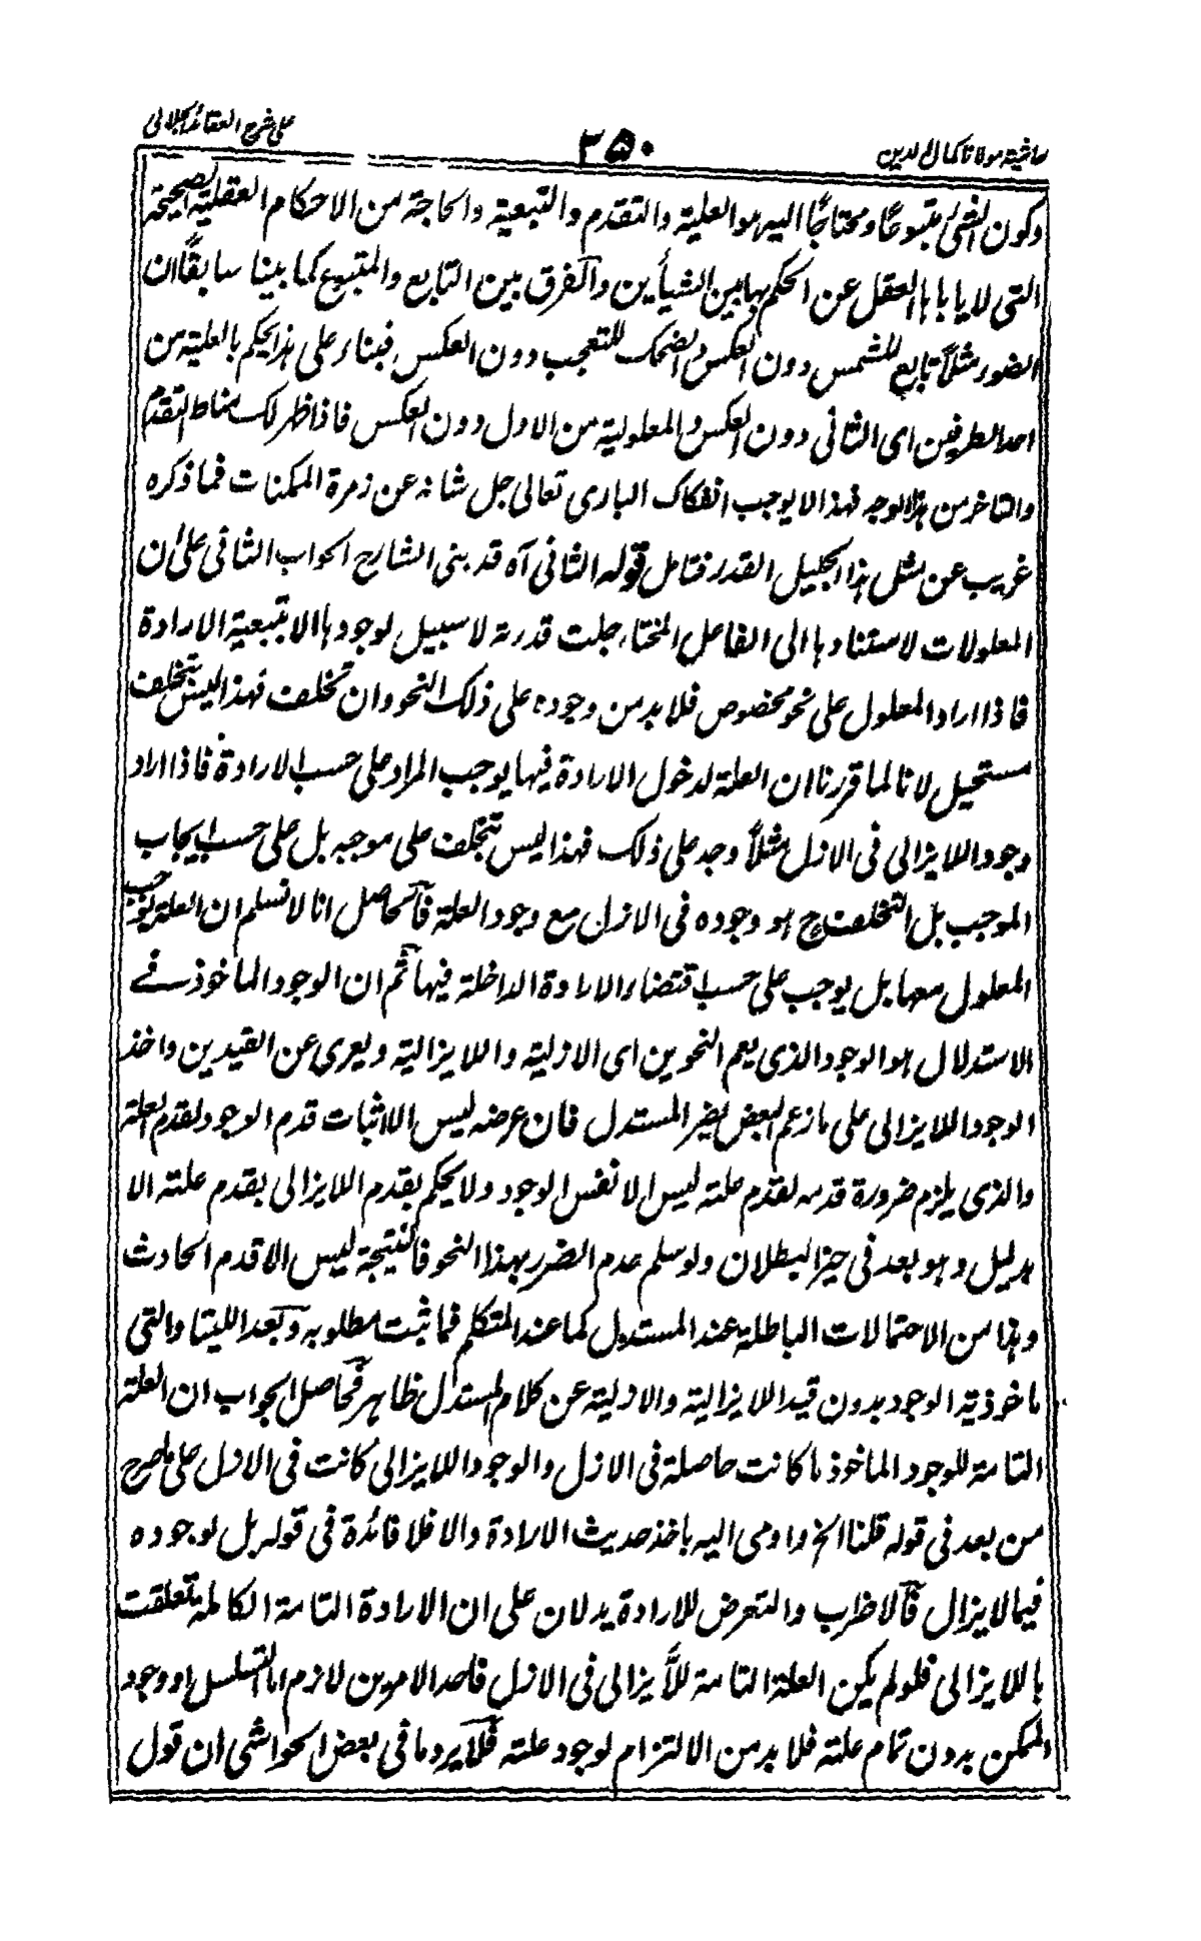 حاشیة مولانا کمال الدین
۳۵۰
علی شرح العقائد الجلالی
وکون الشئ متبوعًا ومحتاجًا الیه هو العلیة والتقدم والتبعیة والحاجة من الاحکام العقلیة الصحیحة
التی لا یاباها العقل عن الحکم بها بین الشیأین والفرق بین التابع والمتبوع کما بینا سابقًا ان
الضوء مثلاً تابع للشمس دون العکس والضحک للتعجب دون العکس فبناء علی هذا یحکم بالعلیة من
احد الطرفین ای الثانی دون العکس والمعلولیة من الاول دون العکس فاذا ظهر لک مناط التقدم
والتاخر من هذا الوجه فهذا لا یوجب انفکاک الباری تعالی جل شانه عن زمرة الممکنات فما ذکره
غریب عن مثل هذا الجلیل القدر فتامل قوله الثانی آه قد بنی الشارح الجواب الثانی علی ان
المعلولات لاستنادها الی الفاعل المختار جلت قدرته لا سبیل لوجودها الا بتبعیة الارادة
فاذا اراد المعلول علی نحو مخصوص فلا بد من وجوده علی ذلک النحو وان تخلف فهذا لیس بتخلف
مستحیل لانا لما قررنا ان العلة لدخول الارادة فیها یوجب المراد علی حسب الارادة فاذا اراد
وجود اللایزالی فی الازل مثلاً وجد علی ذلک فهذا لیس تخلف علی موجبه بل علی حسب ایجاب
الموجب بل التخلف ح هو وجوده فی الازل مع وجود العلة فالحاصل انا لا نسلم ان العلة توجب
المعلول معها بل یوجب علی حسب اقتضاء الارادة الداخلة فیها ثم ان الوجود الماخوذ فے
الاستدلال هو الوجود الذی یعم النحوین ای الازلیة واللایزالیة ویعری عن القیدین واخذ
الوجود اللایزالی علی ما زعم البعض یضر المستدل فان غرضه لیس الا اثبات قدم الوجود لقدم العلة
والذی یلزم ضرورة قدمه لقدم علته لیس الا نفس الوجود ولا یحکم بقدم اللایزالی بقدم علته الا
بدلیل وهو بعد فی حیز البطلان ولو سلم عدم الضرر بهذا النحو فالنتیجة لیس الا قدم الحادث
وهذا من الاحتمالات الباطلة عند المستدل کما عند المتکلم فما ثبت مطلوبه وبعد اللیتا والتی
ماخوذیة الوجود بدون قید اللایزالیة والازلیة عن کلام المستدل ظاهر فحاصل الجواب ان العلة
التامة للوجود الماخوذ ما کانت حاصلة فی الازل والوجود اللایزالی کانت فی الازل علی ما صرح
من بعد فی قوله قلنا الخ واومی الیه باخذ حدیث الارادة والا فلا فائدة فی قوله بل لوجوده
فیما لا یزال فالاضراب والتعرض للارادة یدلان علی ان الارادة التامة الکاملة تعلقت
باللایزالی فلو لم یکن العلة التامة للایزالی فی الازل فاحد الامرین لازم اما التسلسل او وجود
الممکن بدون تمام علته فلا بد من الالتزام لوجود علته فلا یرد ما فی بعض الحواشی ان قول